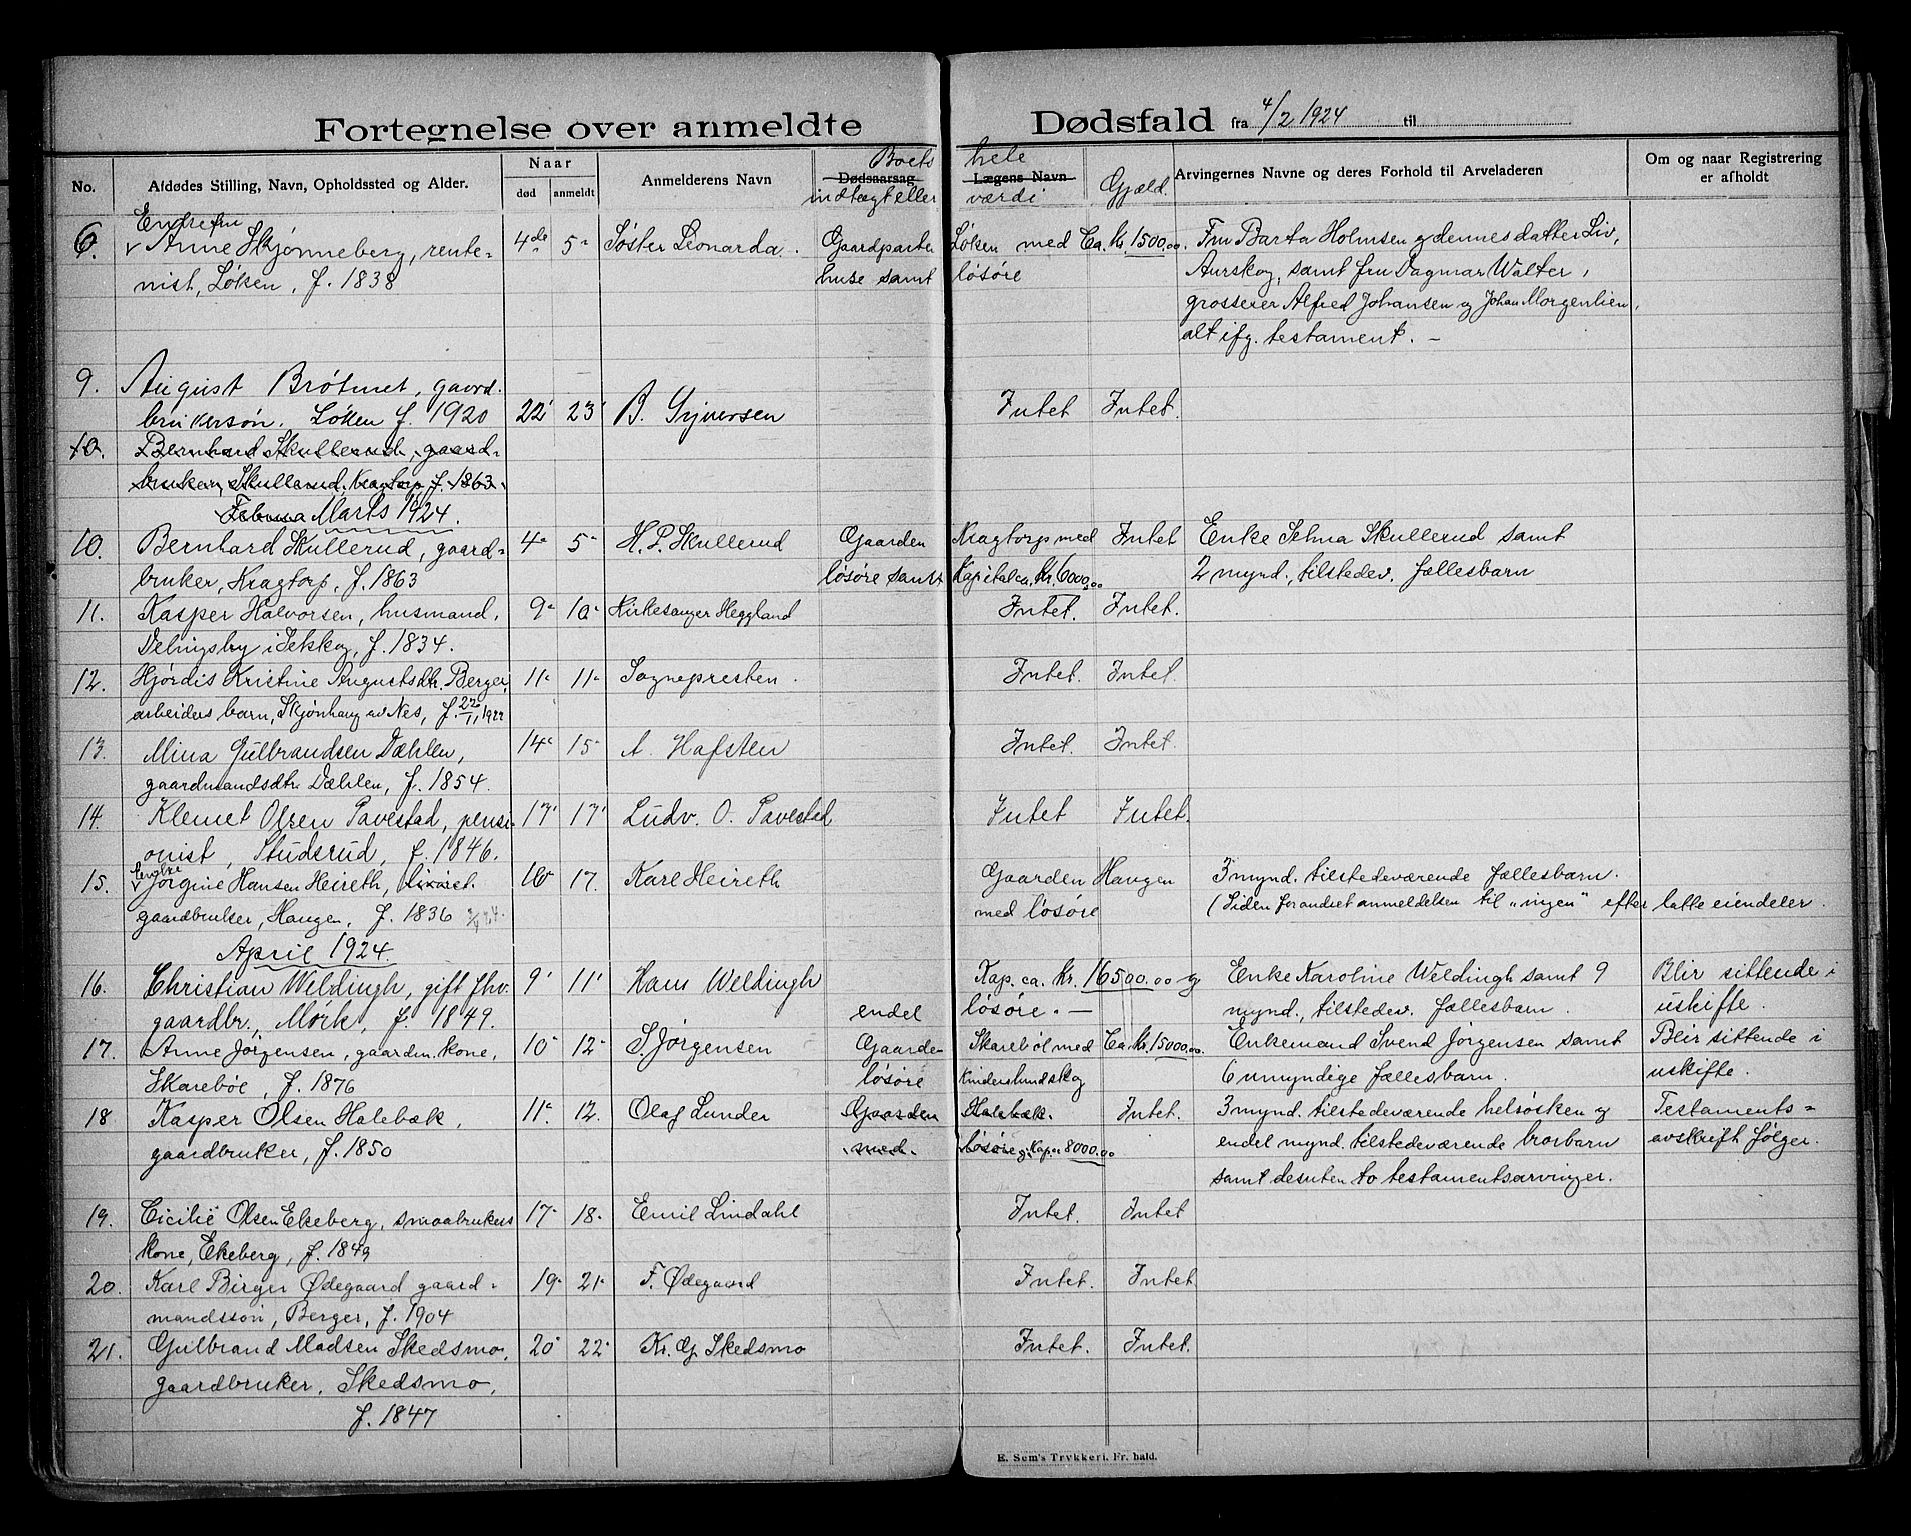 Fortegnelse over anmeldte Dødsfald fra 4/2 1924 til
No. Afdødes Stilling, Navn, Opholdssted og Alder. Naar død anmeldt Anmelderens Navn Dødsaarsag Lægens Navn Boets hele indtægt eller værdi Gjæld. Arvingernes Navne og deres Forhold til Arveladeren Om og naar Registrering er afholdt
Enkefru
6. Anne Skjønneberg, rente- 4de 5- Søster Leonarda. Gaardparten Løken med Ca. Kr. 1500.00. Fru Barta Holmsen og dennes datter Liv,
nist, Løken, f. 1838 huse samt løsøre Aurskog, samt fru Dagmar Walter,
grosserer Alfred Johansen og Johan Morgenlien,
alt ifg. testament. —
9. August Brøtmet, gaard-
brukersøn. Løken f. 1920 22' 23' B. Syversen Intet Intet.
10. Bernhard Skullerud, gaard-
bruker, Skullerud. Kragtorp f. 1863.
Februar Marts 1924.
10. Bernhard Skullerud, gaard- 4- 5- H. P. Skullerud Gaarden Kragtorp med Intet Enke Selma Skullerud samt
bruker, Kragtorp, f. 1863 løsøre samt Kapital ca. Kr. 6000.00 2 mynd., tilstedev. fællesbarn
11. Kasper Halvorsen, husmand, 9- 10- Kirkesanger Heggland Intet. Intet.
i Setskog, f. 1834.
12. Hjørdis Kristine Augustsdtr. Berger, 11- 11- Sognepresten. Intet. Intet.
arbeiders barn, Skjønhaug av Nes, f. 22/11 1922
13. Mina Gulbrandsen Dæhlen, 14- 15- A. Hafsten Intet. Intet.
gaardmandsdtr. Dæhlen, f. 1854.
14. Klemet Olsen Tavestad, pensi- 17' 17' Ludv. O. Tavestad Intet Intet.
onist, Studsrud, f. 1846.
Enke
15. Jørgine Hansen Heireth, 16- 17. Karl Heireth Gaarden Haugen 3 mynd. tilstedeværende fællesbarn.
gaardbruker, Haugen, f. 1836 med løsøre (Siden forandret anmeldelsen til "ingen" efterlatte eiendeler.
April 1924.
16. Christian Weldingh, gift fhv. 9' 11' Hans Weldingh Kap. ca. Kr. 16500.00 og Enke Karoline Weldingh samt 9 Blir sittende i
gaardbr., Mørk, f. 1849. løsøre. — mynd., tilstedev. fællesbarn. uskifte.
endel
17. Anne Jørgensen, gaardm. kone, 10- 12- S. Jørgensen Gaarden Skarebøl med Ca. Kr. 15000.00. Enkemand Svend Jørgensen samt Blir sittende i
Skarebøl, f. 1876 løsøre 6 umyndige fællesbarn. uskifte.
18. Kasper Olsen Halebæk, 11- 12. Olaf Lunder Gaarden Halebæk. Intet. 3 mynd. tilstedeværende helsøsken og Testaments-
gaardbruker, f. 1850 med løsøre og Kap. 8000.00 endel mynd. tilstedeværende brorbarn avskrift følger.
samt desuten to testamentsarvinger.
19. Cicilie Olsen Ekeberg, smaabrukers 17- 18- Emil Lindahl Intet. Intet
kone, Ekeberg, f. 1849
20. Karl Birger Ødegaard gaard- 19- 21- F. Ødegaard Intet. Intet
mandssøn, Berger, f. 1904
21. Gulbrand Madsen Skedsmo, 20- 22- Kr. G. Skedsmo Intet. Intet.
gaardbruker, Skedsmo,
f. 1847
E. Sem's Trykkeri, Fr. hald.